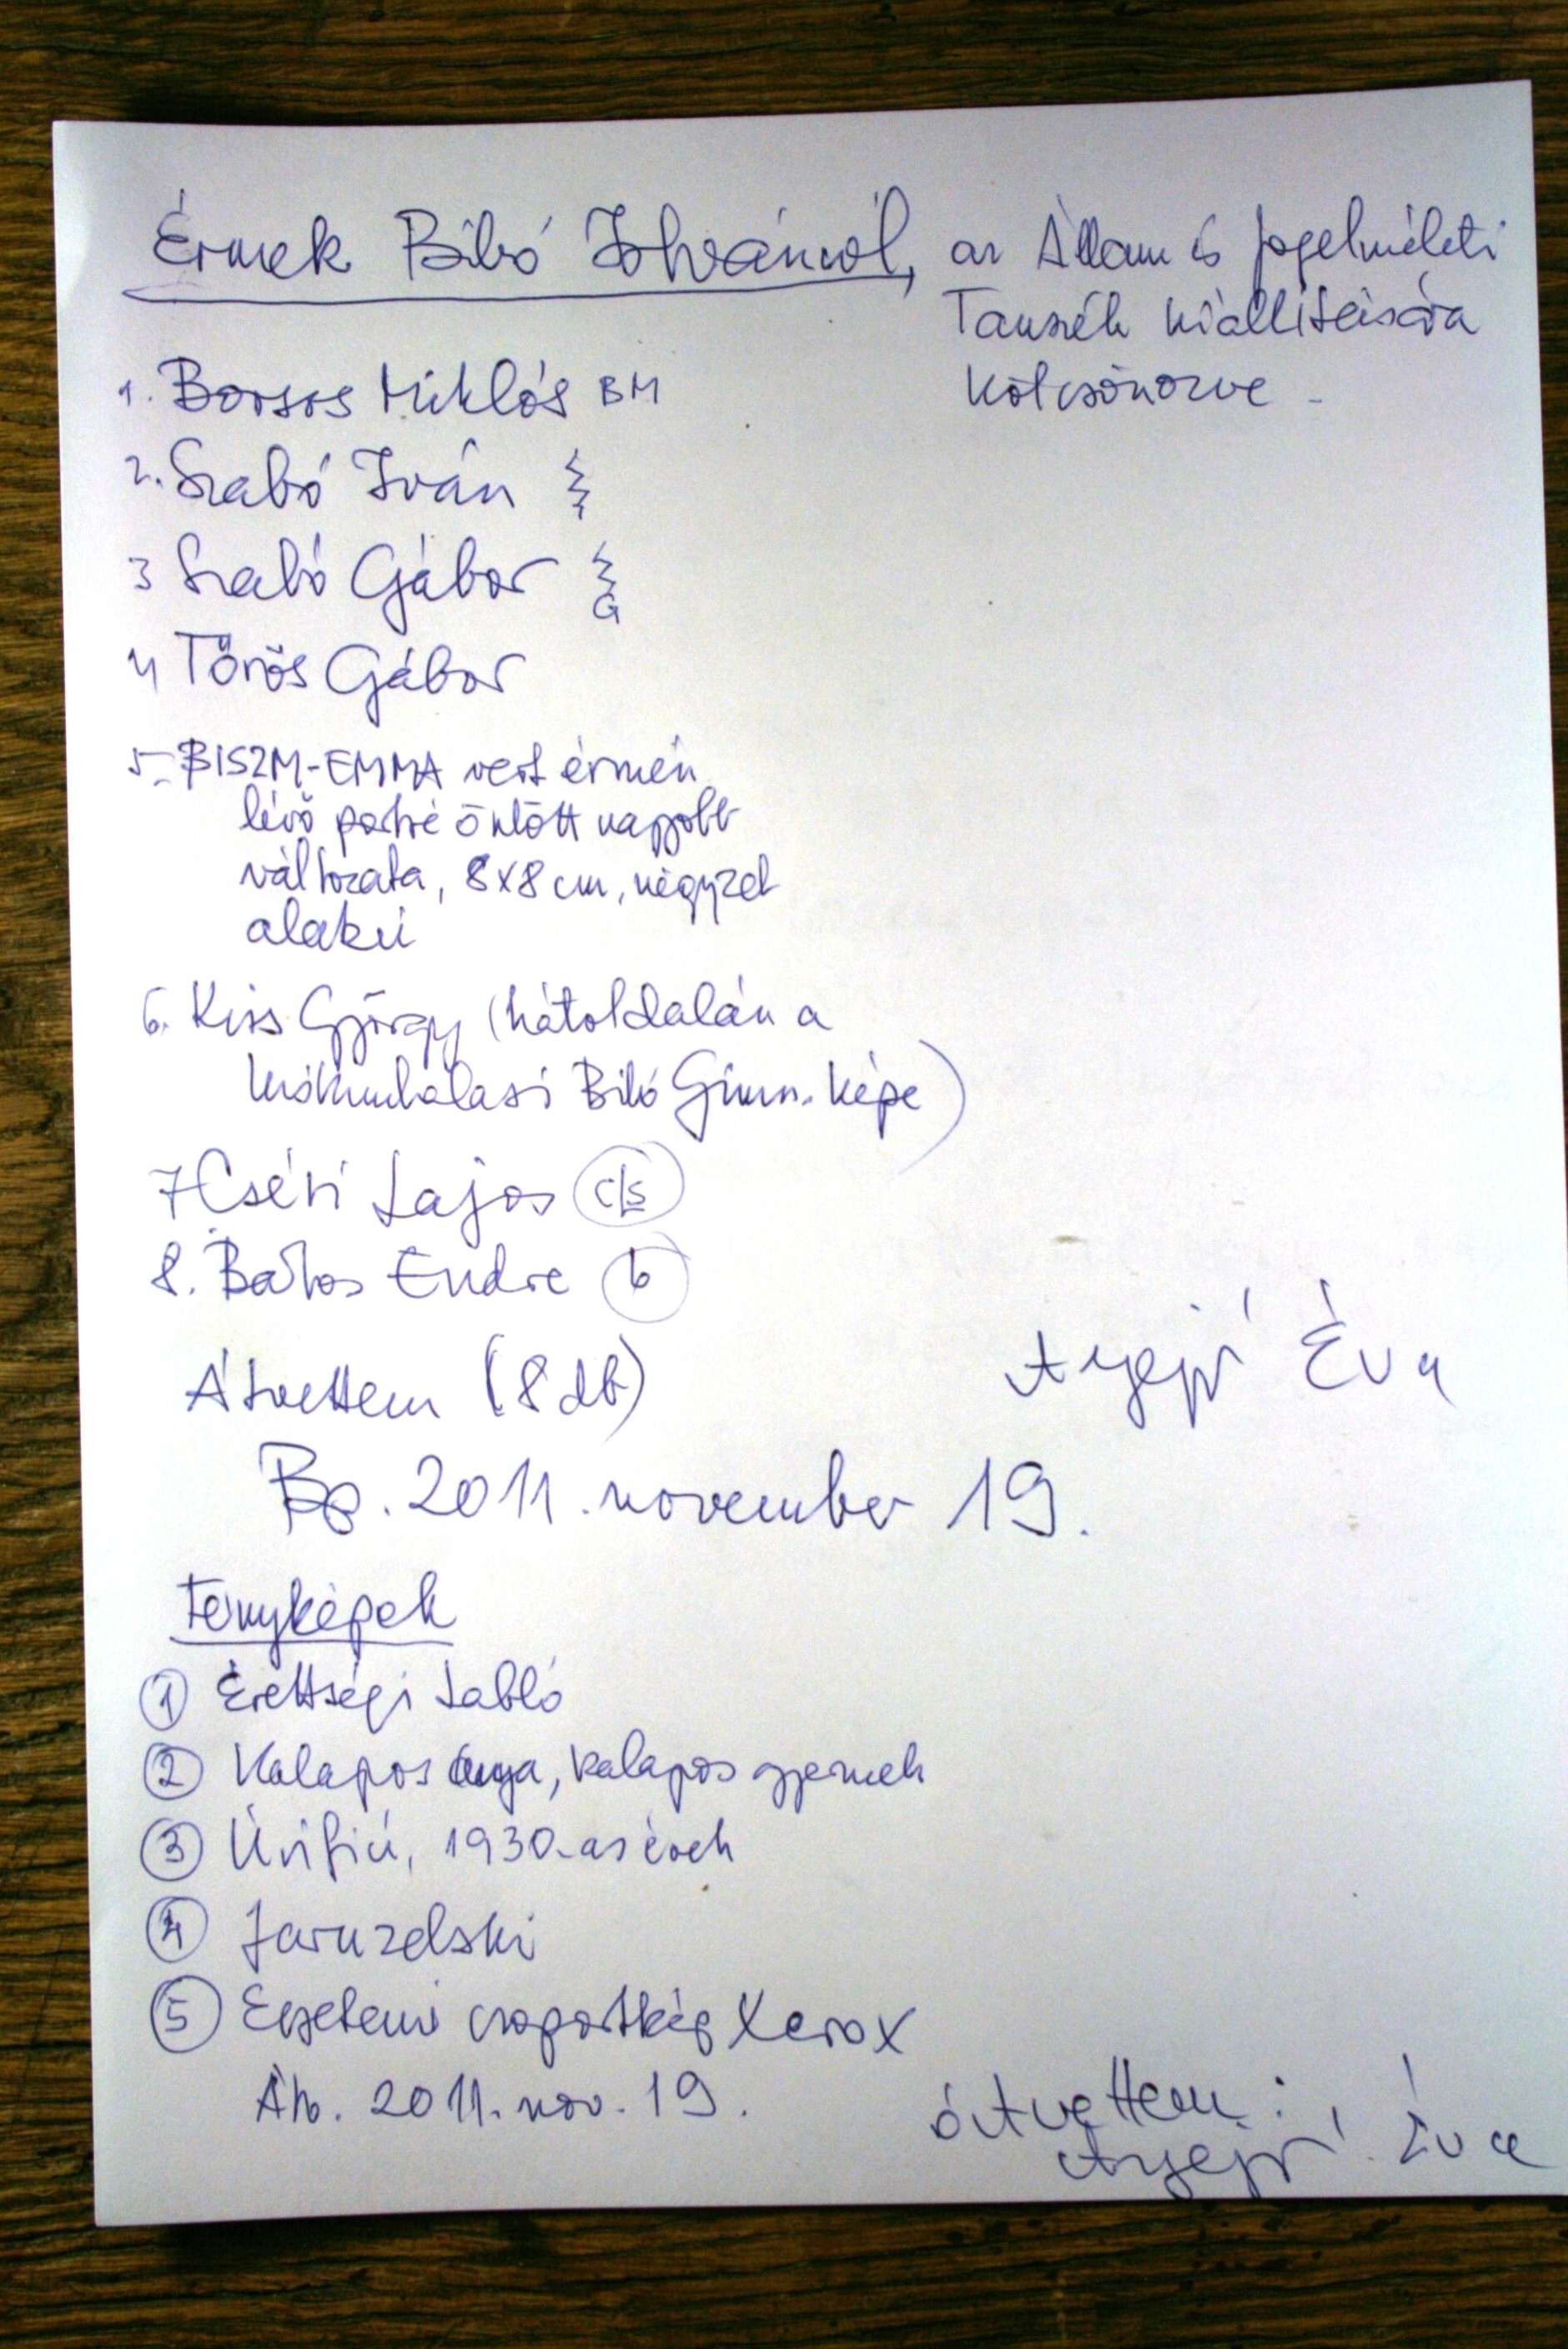 Érmek Bibó Istvánról, az Állam és Jogelméleti
Tanszék kiállítására
kölcsönözve -
1. Borsos Miklós BM
2. Szabó Iván
3 Szabó Gábor G
4 Törös Gábor
5. BISZM-EMMA vert érmén
lévő portré öntött nagyobb
változata, 8x8 cm, négyzet
alakú
6. Kiss György (hátoldalán a
kiskunhalasi Bibó Gimn. képe)
7 Cséri Lajos cls
8. Bátos Endre b
Átvettem (8 db) Éva
Bp. 2011. november 19.
Fényképek
1 Érettségi tabló
2 Kalapos anya, kalapos gyermek
3 Úrifiú, 1930-as évek
4 Jaruzelski
5 Egyetemi csoportkép Xerox
2011. nov. 19. átvettem:
Éva